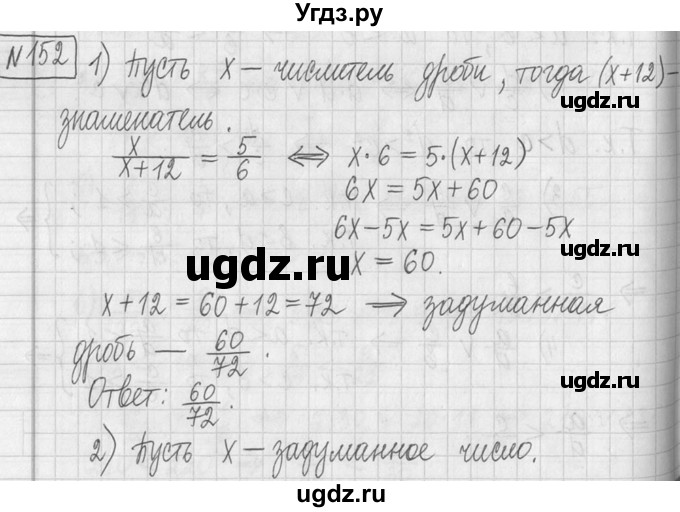 Угдз.ру
№152 1) Пусть x — числитель дроби, тогда (x+12) –
знаменатель.
x/(x+12) = 5/6 ⟺ x·6 = 5·(x+12)
6x = 5x+60
6x−5x = 5x+60−5x
x = 60.
x+12 = 60+12 = 72 ⟹ задуманная
дробь — 60/72.
Ответ: 60/72.
2) Пусть x — задуманное число.
ugdz.ru
ugdz.ru
ugdz.ru
ugdz.ru
ugdz.ru
ugdz.ru
ugdz.ru
ugdz.ru